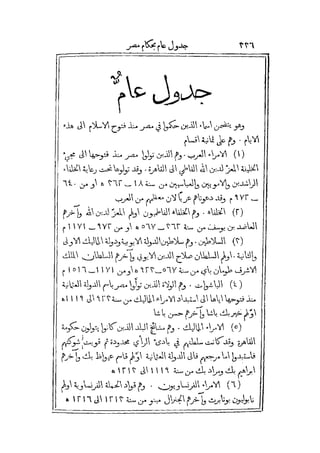 ٣٣٦ جدول عام بحكام مصر
جدول عام
وهو يتضمن اسماء الذين حكموا في مصر منذ فتوح الاسلام الى هذه
الايام . وهم على ثمانية اقسام
(١) الامراء العرب . وهم الذين تولوا مصر منذ فتوحها الى مجيء
الخليفة المعز لدين الله الفاطمي الى القاهرة . وقد تولوها تحت رعاية الخلفاء
الراشدين والامويين والعباسيين من سنة ١٨ ــ ٣٦٢ ه او من ٦٤٠
ــ ٩٧٣ م وقد دعوناهم عربًا لان معظمهم من العرب
(٢) الخلفاء . وهم الخلفاء الفاطميون اولهم المعز لدين الله وآخرهم
العاضد بن يوسف من سنة ٣٦٢ ــ ٥٦٧ ه او من ٩٧٣ ــ ١١٧١ م
(٣) السلاطين . وهم سلاطين الدولة الايوبية ودولة المماليك الاولى
والثانية . اولهم السلطان صلاح الدين الايوبي وآخرهم السلطان الملك
الاشرف طومان باي من سنة ٥٦٧ ــ ٩٢٣ ه او من ١١٧١ ــ ١٥١٦ م
(٤) الباشوات . وهم الولاة الذين تولوا مصر باسم الدولة العثمانية
منذ فتوحها اياها الى استبداد الامراء المماليك من سنة ٩٢٣ الى ١١١٩ ه
اولهم خير بك باشا وآخرهم حسن باشا
(٥) الامراء المماليك . وهم مشائخ البلد الذين كانوا يتولون حكومة
القاهرة وقد كانت سلطتهم في بادئ الرأي محدودة ثم قويت شوكتهم
فاستبدوا اما مرجعهم فالى الدولة العثمانية اولهم قاسم عيواظ بك وآخرهم
ابراهيم بك ومراد بك من سنة ١١١٩ الى ١٢١٣ ه
(٦) الامراء الفرنساويون . وهم قواد الحملة الفرنساوية اولهم
نابوليون بونابرت وآخرهم الجنرال مينو من سنة ١٢١٣ الى ١٢١٦ ه